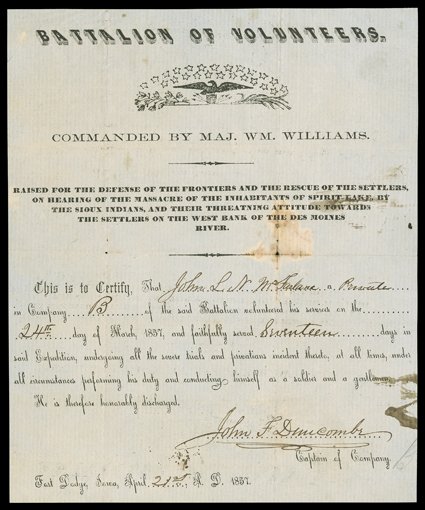 BATTALION OF VOLUNTEERS.
COMMANDED BY MAJ. WM. WILLIAMS.
RAISED FOR THE DEFENSE OF THE FRONTIERS AND THE RESCUE OF THE SETTLERS,
ON HEARING OF THE MASSACRE OF THE INHABITANTS OF SPIRIT LAKE, BY
THE SIOUX INDIANS, AND THEIR THREATNING ATTITUDE TOWARDS
THE SETTLERS ON THE WEST BANK OF THE DES MOINES
RIVER.
This is to Certify, That John L. N. a Private
in Company B of the said Battalion volunteered his services on the
24th day of March, 1857, and faithfully served Seventeen days in
said Expedition, undergoing all the severe trials and privations incident thereto, at all times, under
all circumstances performing his duty and conducting himself as a soldier and a gentleman.
He is therefore honorably discharged.
John F Duncombe
Captain of Company.
Fort Dodge, Iowa, April 21st, A. D. 1857.